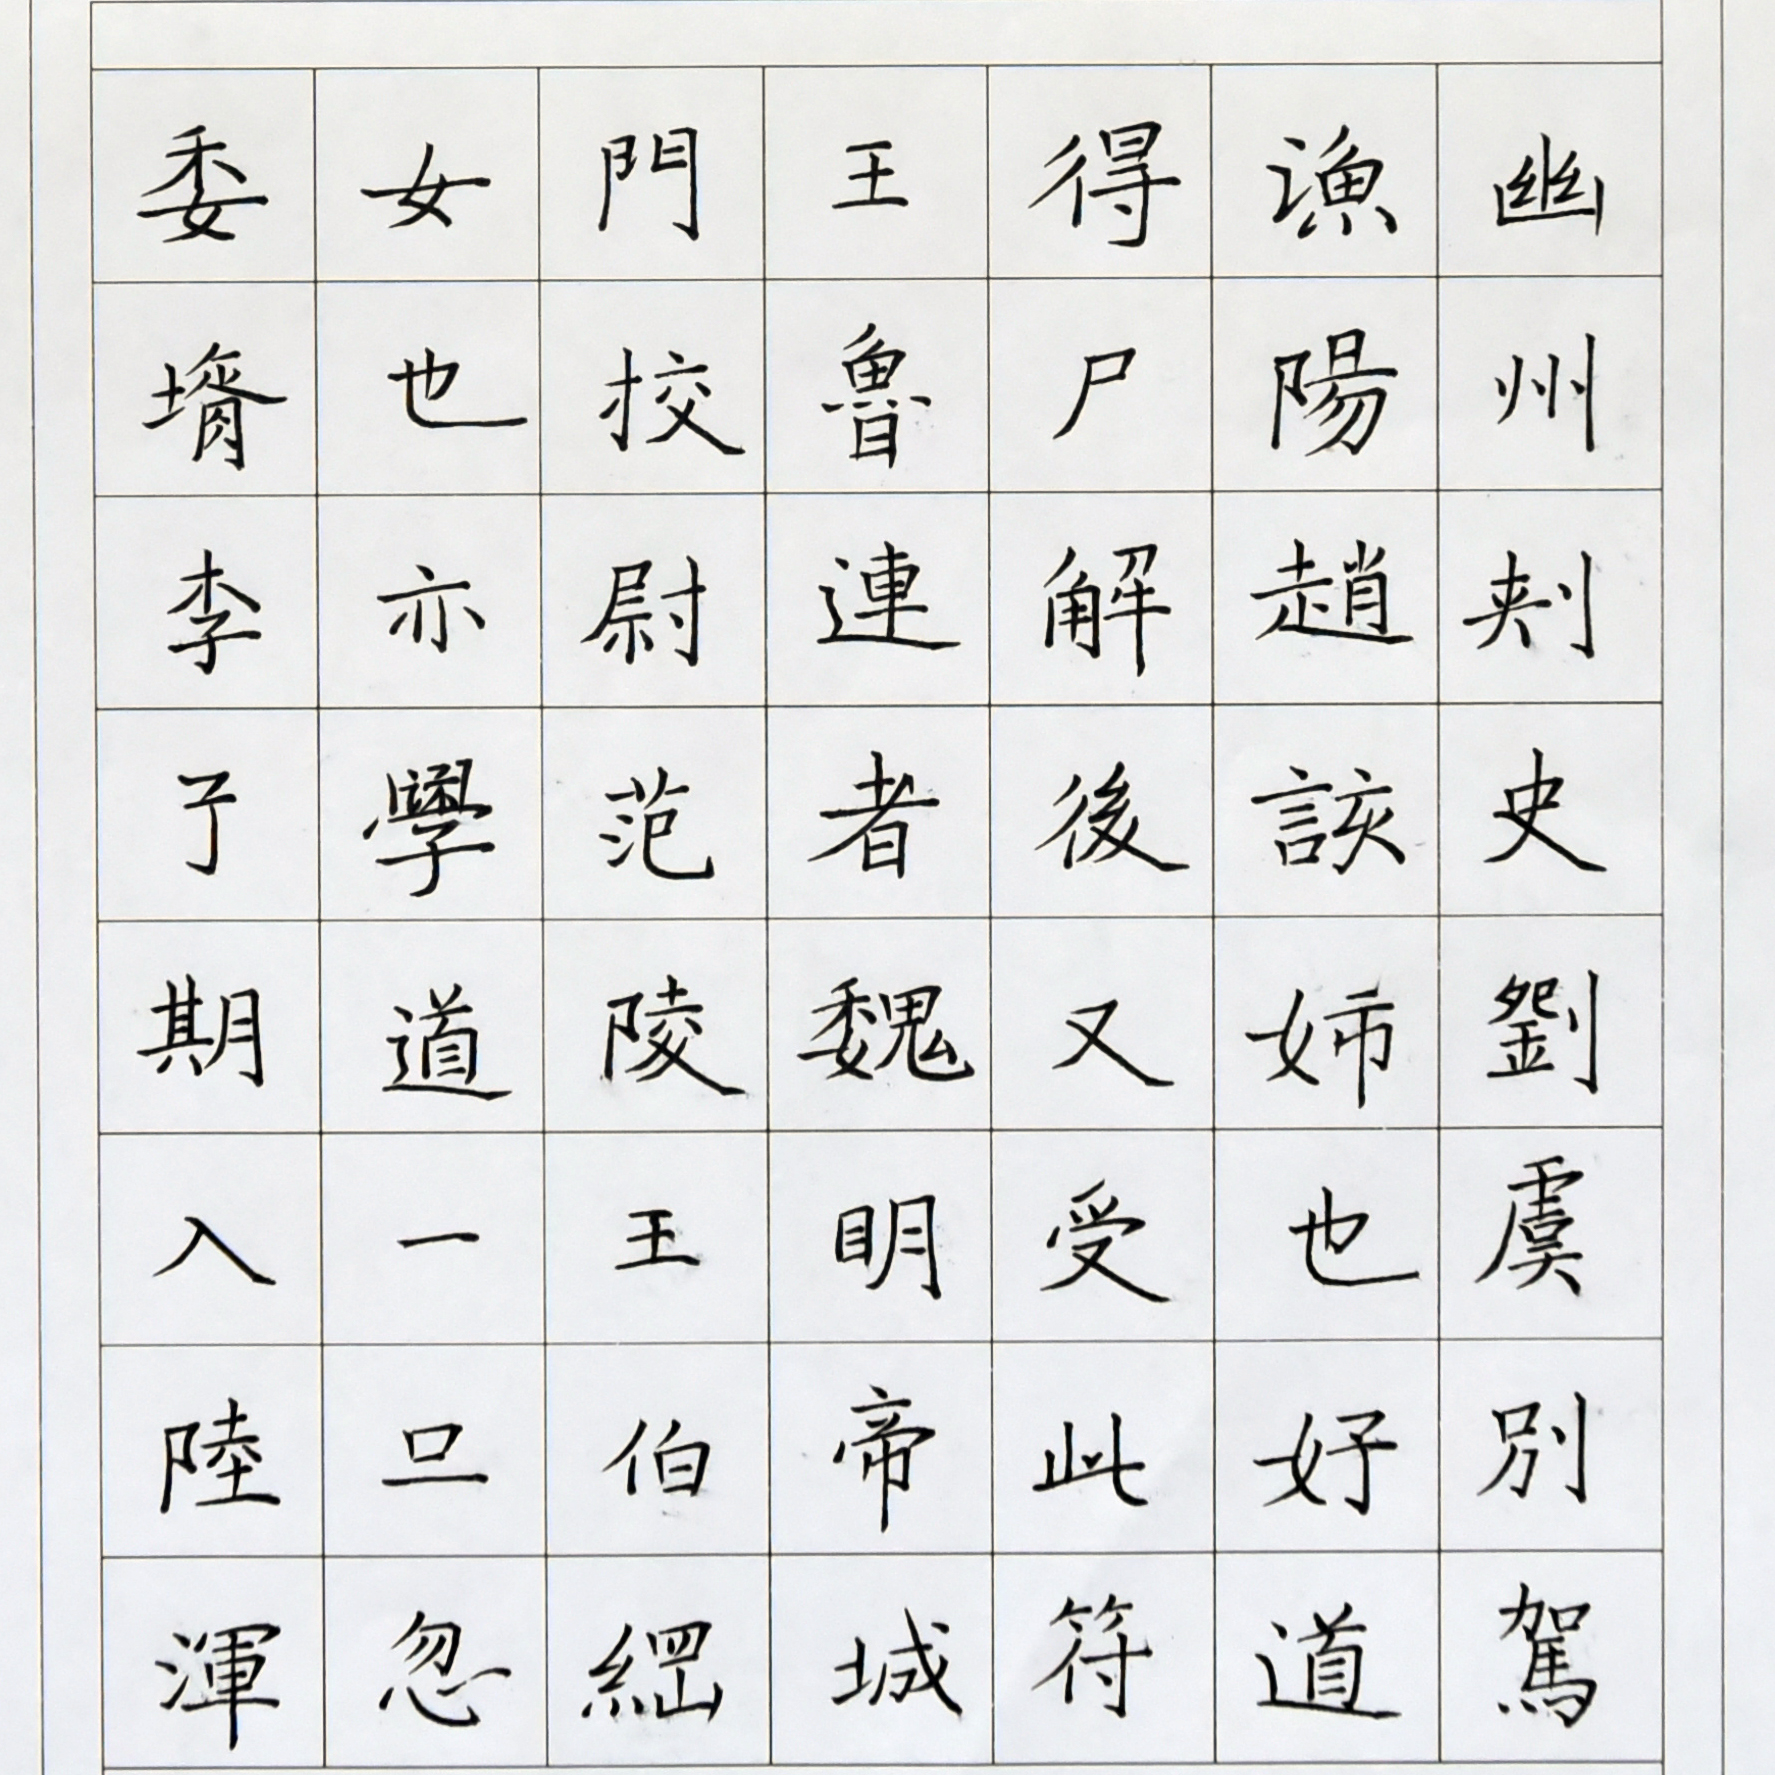 幽州刾史劉虞別駕
漁陽趙該姊也好道
得尸解後又受此符
王魯連者魏眀帝城
門挍尉范陵王伯綱
女也亦學道一旦忽
委壻李子期入陸渾